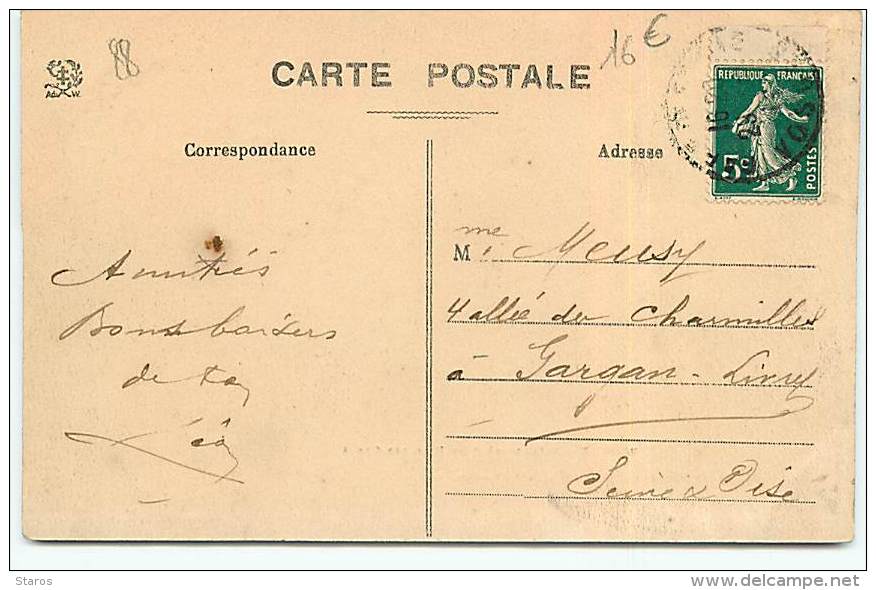 88
16 €
CARTE POSTALE
Ad. W.
RÉPUBLIQUE FRANÇAISE
5c
POSTES
VOSGES
Correspondance
Adresse
Amitiés
Bons baisers
de ta
Léa
Mme Meusy
4 allée des Charmilles
à Gargan-Livry
Seine & Oise
Staros
delcampe.net